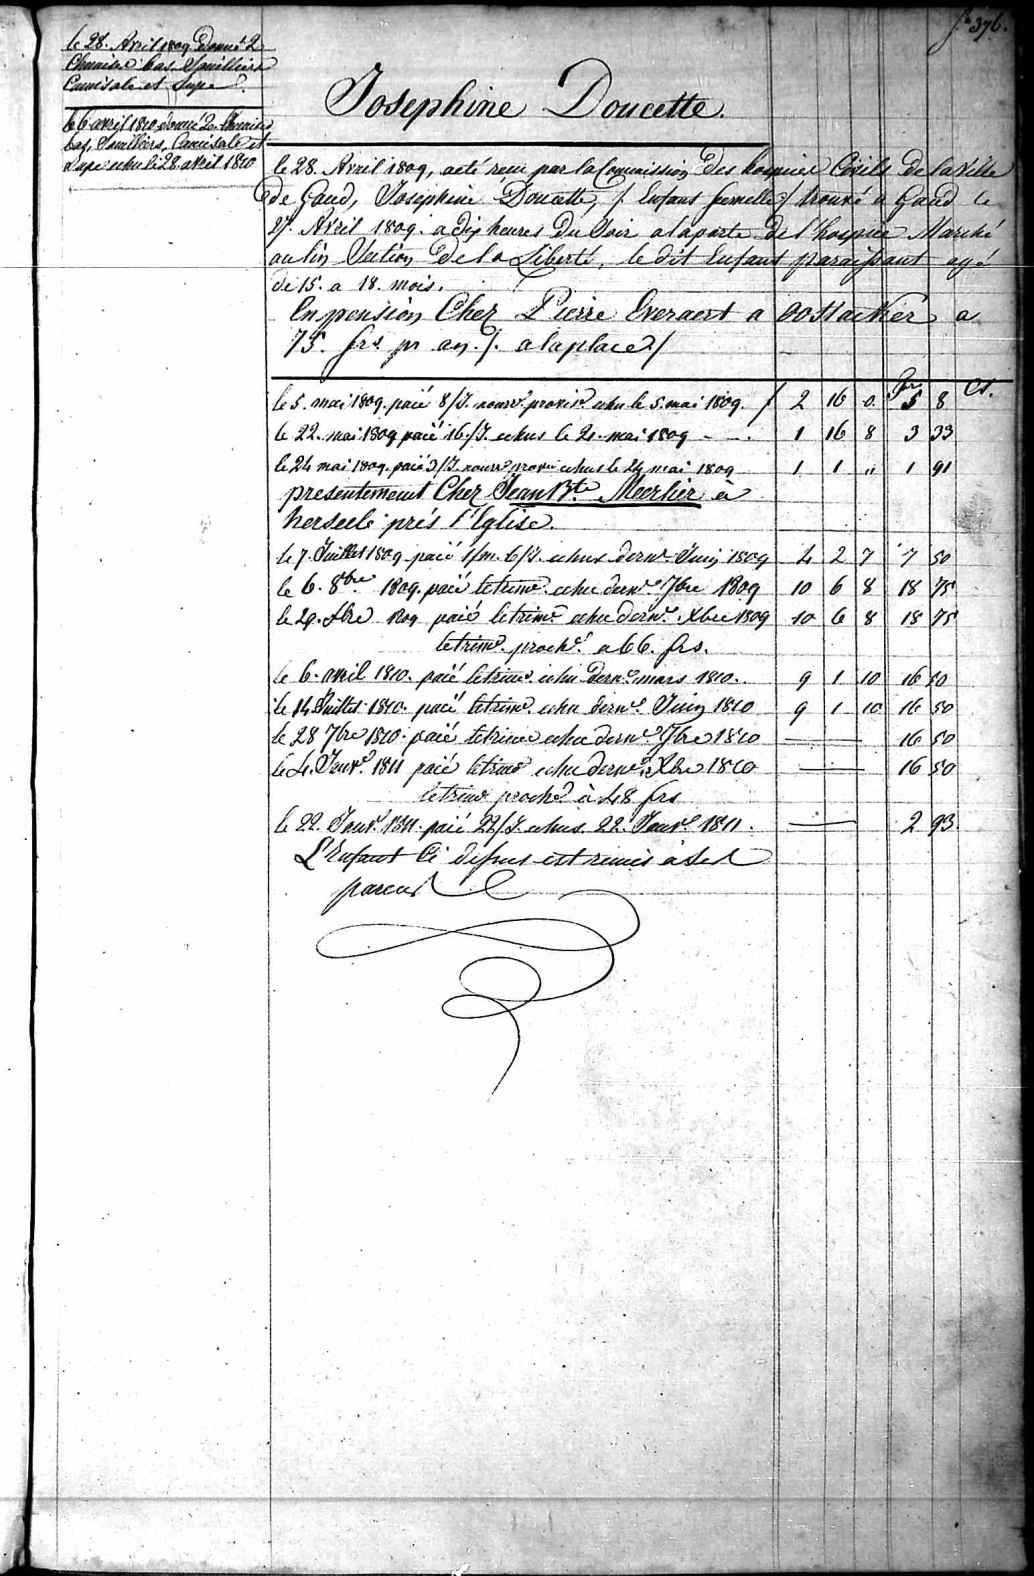 f° 376.
le 28. Avril 1809 donné 2
Chemises bas Soulliers
Camisole et Jupe
le 6 avril 1810 donné 2 Chemises
bas, Soulliers, Camisole et
Jupe echu le 28 avril 1810
Josephine Doucette.
le 28. Avril 1809, a eté recu par la Commission des hospices Civils de la Ville
de Gand, Josephine Doucette, /: Enfans femelle :/ trouvé a Gand le
27. Avril 1809. a dix heures du Soir a la porte de l'hospice Marché
au lin Section de la Liberté, le dit Enfant paraissant agé
de 15. a 18. mois.
En pension Chez Pierre Everaert a Oostacker a
75. frs. pr an. /. a la place /
fr. Ct.
le 5. mai 1809. paié 8/J. nourre. provisre. echu le 5. mai 1809. / 2 16 0. 5 8
le 22. mai 1809 paié 16/J. echus le 21. mai 1809 - . 1 16 8 3 33
le 24 mai 1809. paié 3/J. nourre provre echus le 24 mai 1809 1 1 " 1 91
presentement Chez Jean Bte. Meerlier à
herseele prés l'Eglise.
le 7. Juillet 1809 paié 1/m. 6/J. echus derne. Juin 1809 4 2 7 7 50
le 6. 8bre. 1809. paié le trime. echu derne. 7bre 1809 10 6 8 18 75
le 29. Xbre 1809 paié le trime. echu derne. Xbre 1809 10 6 8 18 75
le trime. proche. a 66. frs.
le 6. avril 1810. paié le trime. echu derne. mars 1810. 9 1 10 16 50
le 14 Juillet 1810. paié le trime. echu derne. Juin 1810 9 1 10 16 50
le 28 7bre 1810. paié le trime echu derne. 7bre 1810 — 16 50
le 4. Janve. 1811 paié le trime echu derne. Xbre 1810 — 16 50
le trime proche. à 48 frs
le 22. Janve. 1811. paié 22/J. echus 22. Janve. 1811. — 2 93
L'Enfant Ci dessus est remis à Ses
parens